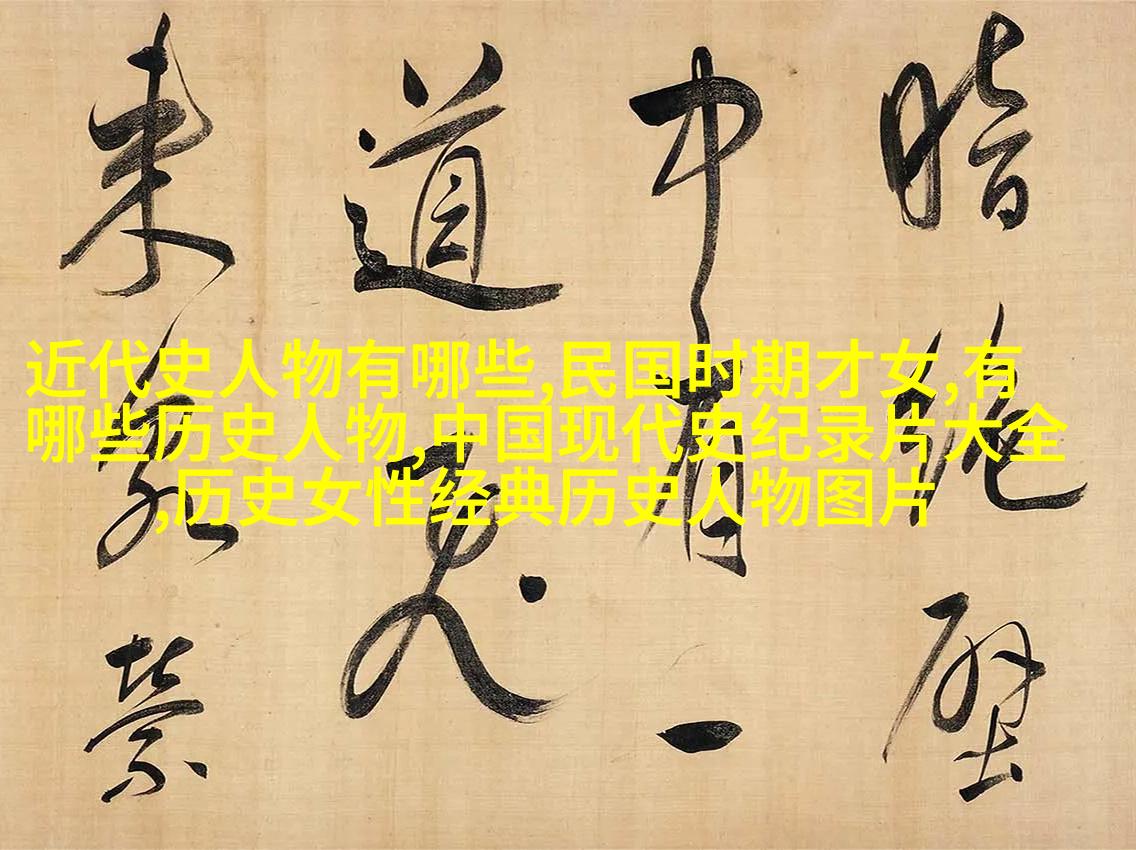 近代史人物有哪些,民国时期才女,有
哪些历史人物,中国现代史纪录片大全
,历史女性经典历史人物图片
暗絕
中有一
道飛
來泉縈